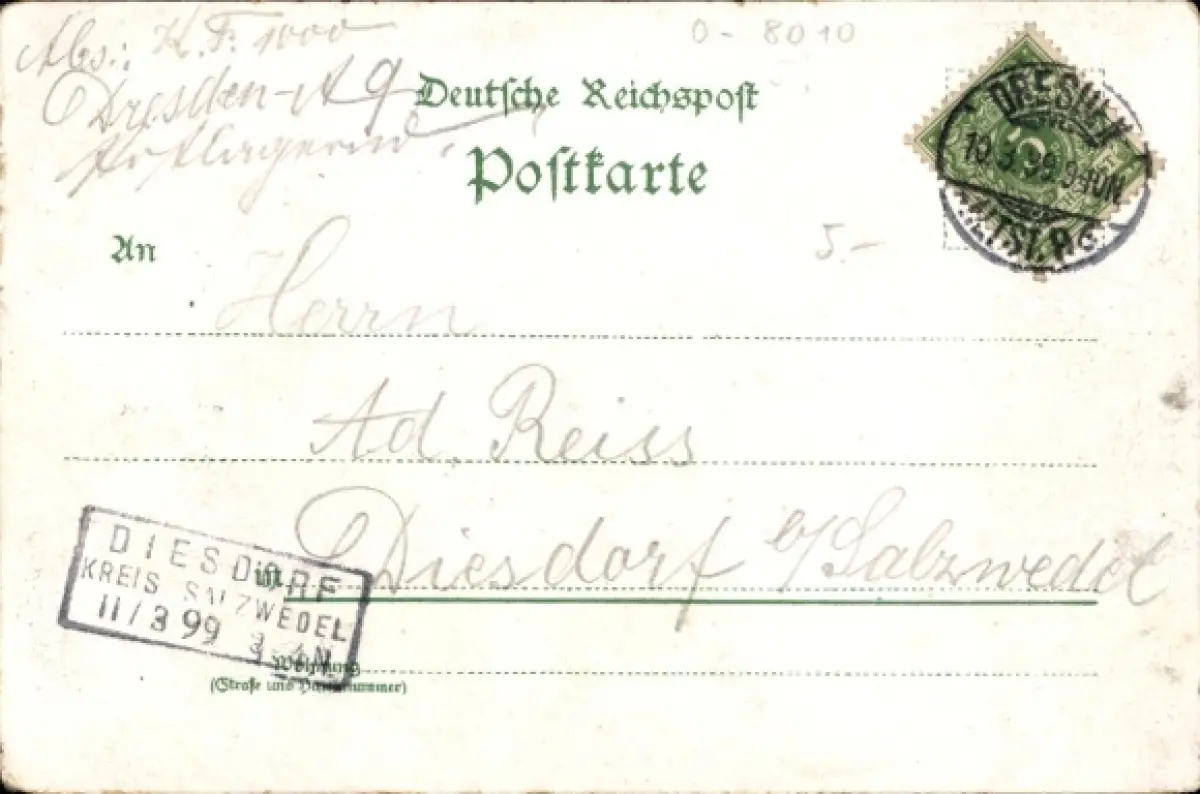 Abs.: K. F. 1000
Dresden-A 9
postlagernd.
0-8010
Deutsche Reichspost
Postkarte
DRESDEN
10.3.99.9-10N.
ALTST. 9 c
An
5.-
Herrn
Ad. Reiss
in Diesdorf b/Salzwedel
DIESDORF
KREIS SALZWEDEL
11/3 99 3-4N
Wohnung
(Straße und Hausnummer)